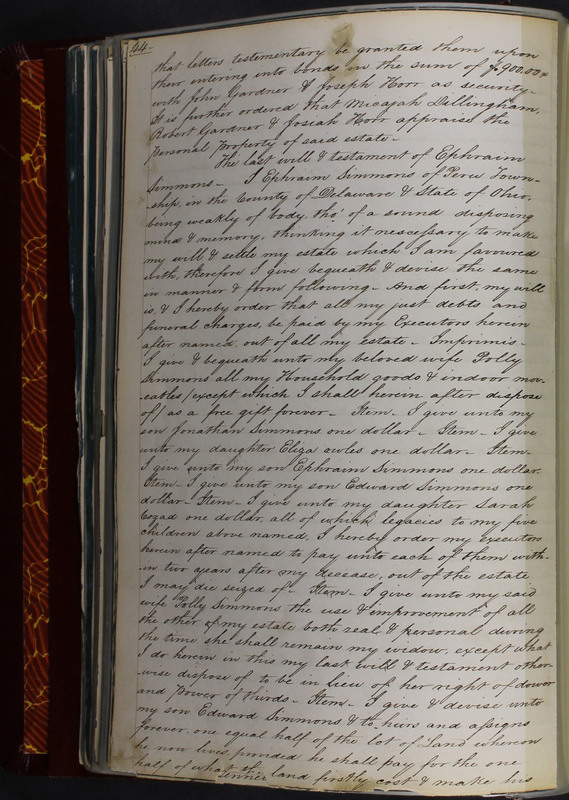 44-
that letters testementary be granted them upon
their entering into bonds in the sum of $900.00
with John Gardner & Joseph Horr as security-
It is further ordered that Micajah Dillingham,
Robert Gardner & Josiah Horr appraise the
personal property of said estate-
The last will & testament of Ephraim
Simmons- I Ephraim Simmons of Peru Town-
-ship, in the County of Delaware & State of Ohio,
being weakly of body, tho' of a sound disposing
mind & memory, thinking it nescessary to make
my will & settle my estate which I am favoured
with, therefore I give bequeath & devise the same
in manner & form following- And first, my will
is, & I hereby order that all my just debts and
funeral charges, be paid by my Executors herein
after named, out of all my estate- Imprimis-
I give & bequeath unto my beloved wife Polly
Simmons all my Household goods & indoor mov-
eables (except which I shall herein after dispose
of) as a free gift forever- Item- I give unto my
son Jonathan Simmons one dollar- Item- I give
unto my daughter Eliza one dollar- Item-
I give unto my son Ephraim Simmons one dollar.
Item- I give unto my son Edward Simmons one
dollar- Item- I give unto my daughter Sarah
Cozad one dollar, all of which legacies to my five
children above named, I hereby order my executors
herein after named to pay unto each of them with-
-in two years after my decease, out of the estate
I may die seized of- Item- I give unto my said
wife Polly Simmons the use & improvement of all
the other of my estate both real & personal during
the time she shall remain my widow, except what
I do herein in this my last will & testament other-
-wise dispose of to be in lieu of her right of dower
and power of thirds- Item- I give & devise unto
my son Edward Simmons & to heirs and assigns
forever one equal half of the lot of Land whereon
he now lives provided he shall pay for the one
half of what the land firstly cost & make his